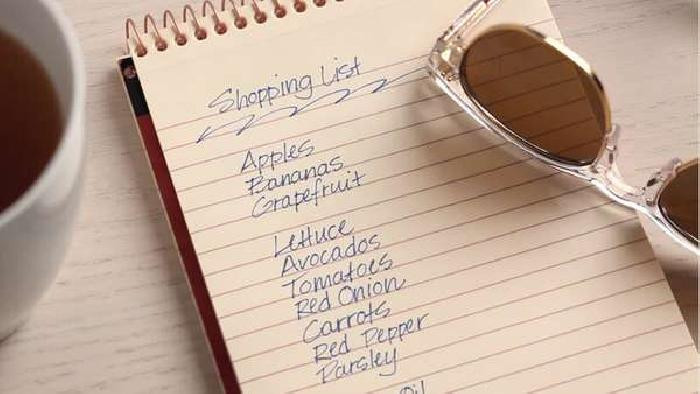 Shopping List
Apples
Bananas
Grapefruit
Lettuce
Avocados
Tomatoes
Red Onion
Carrots
Red Pepper
Parsley
Oil